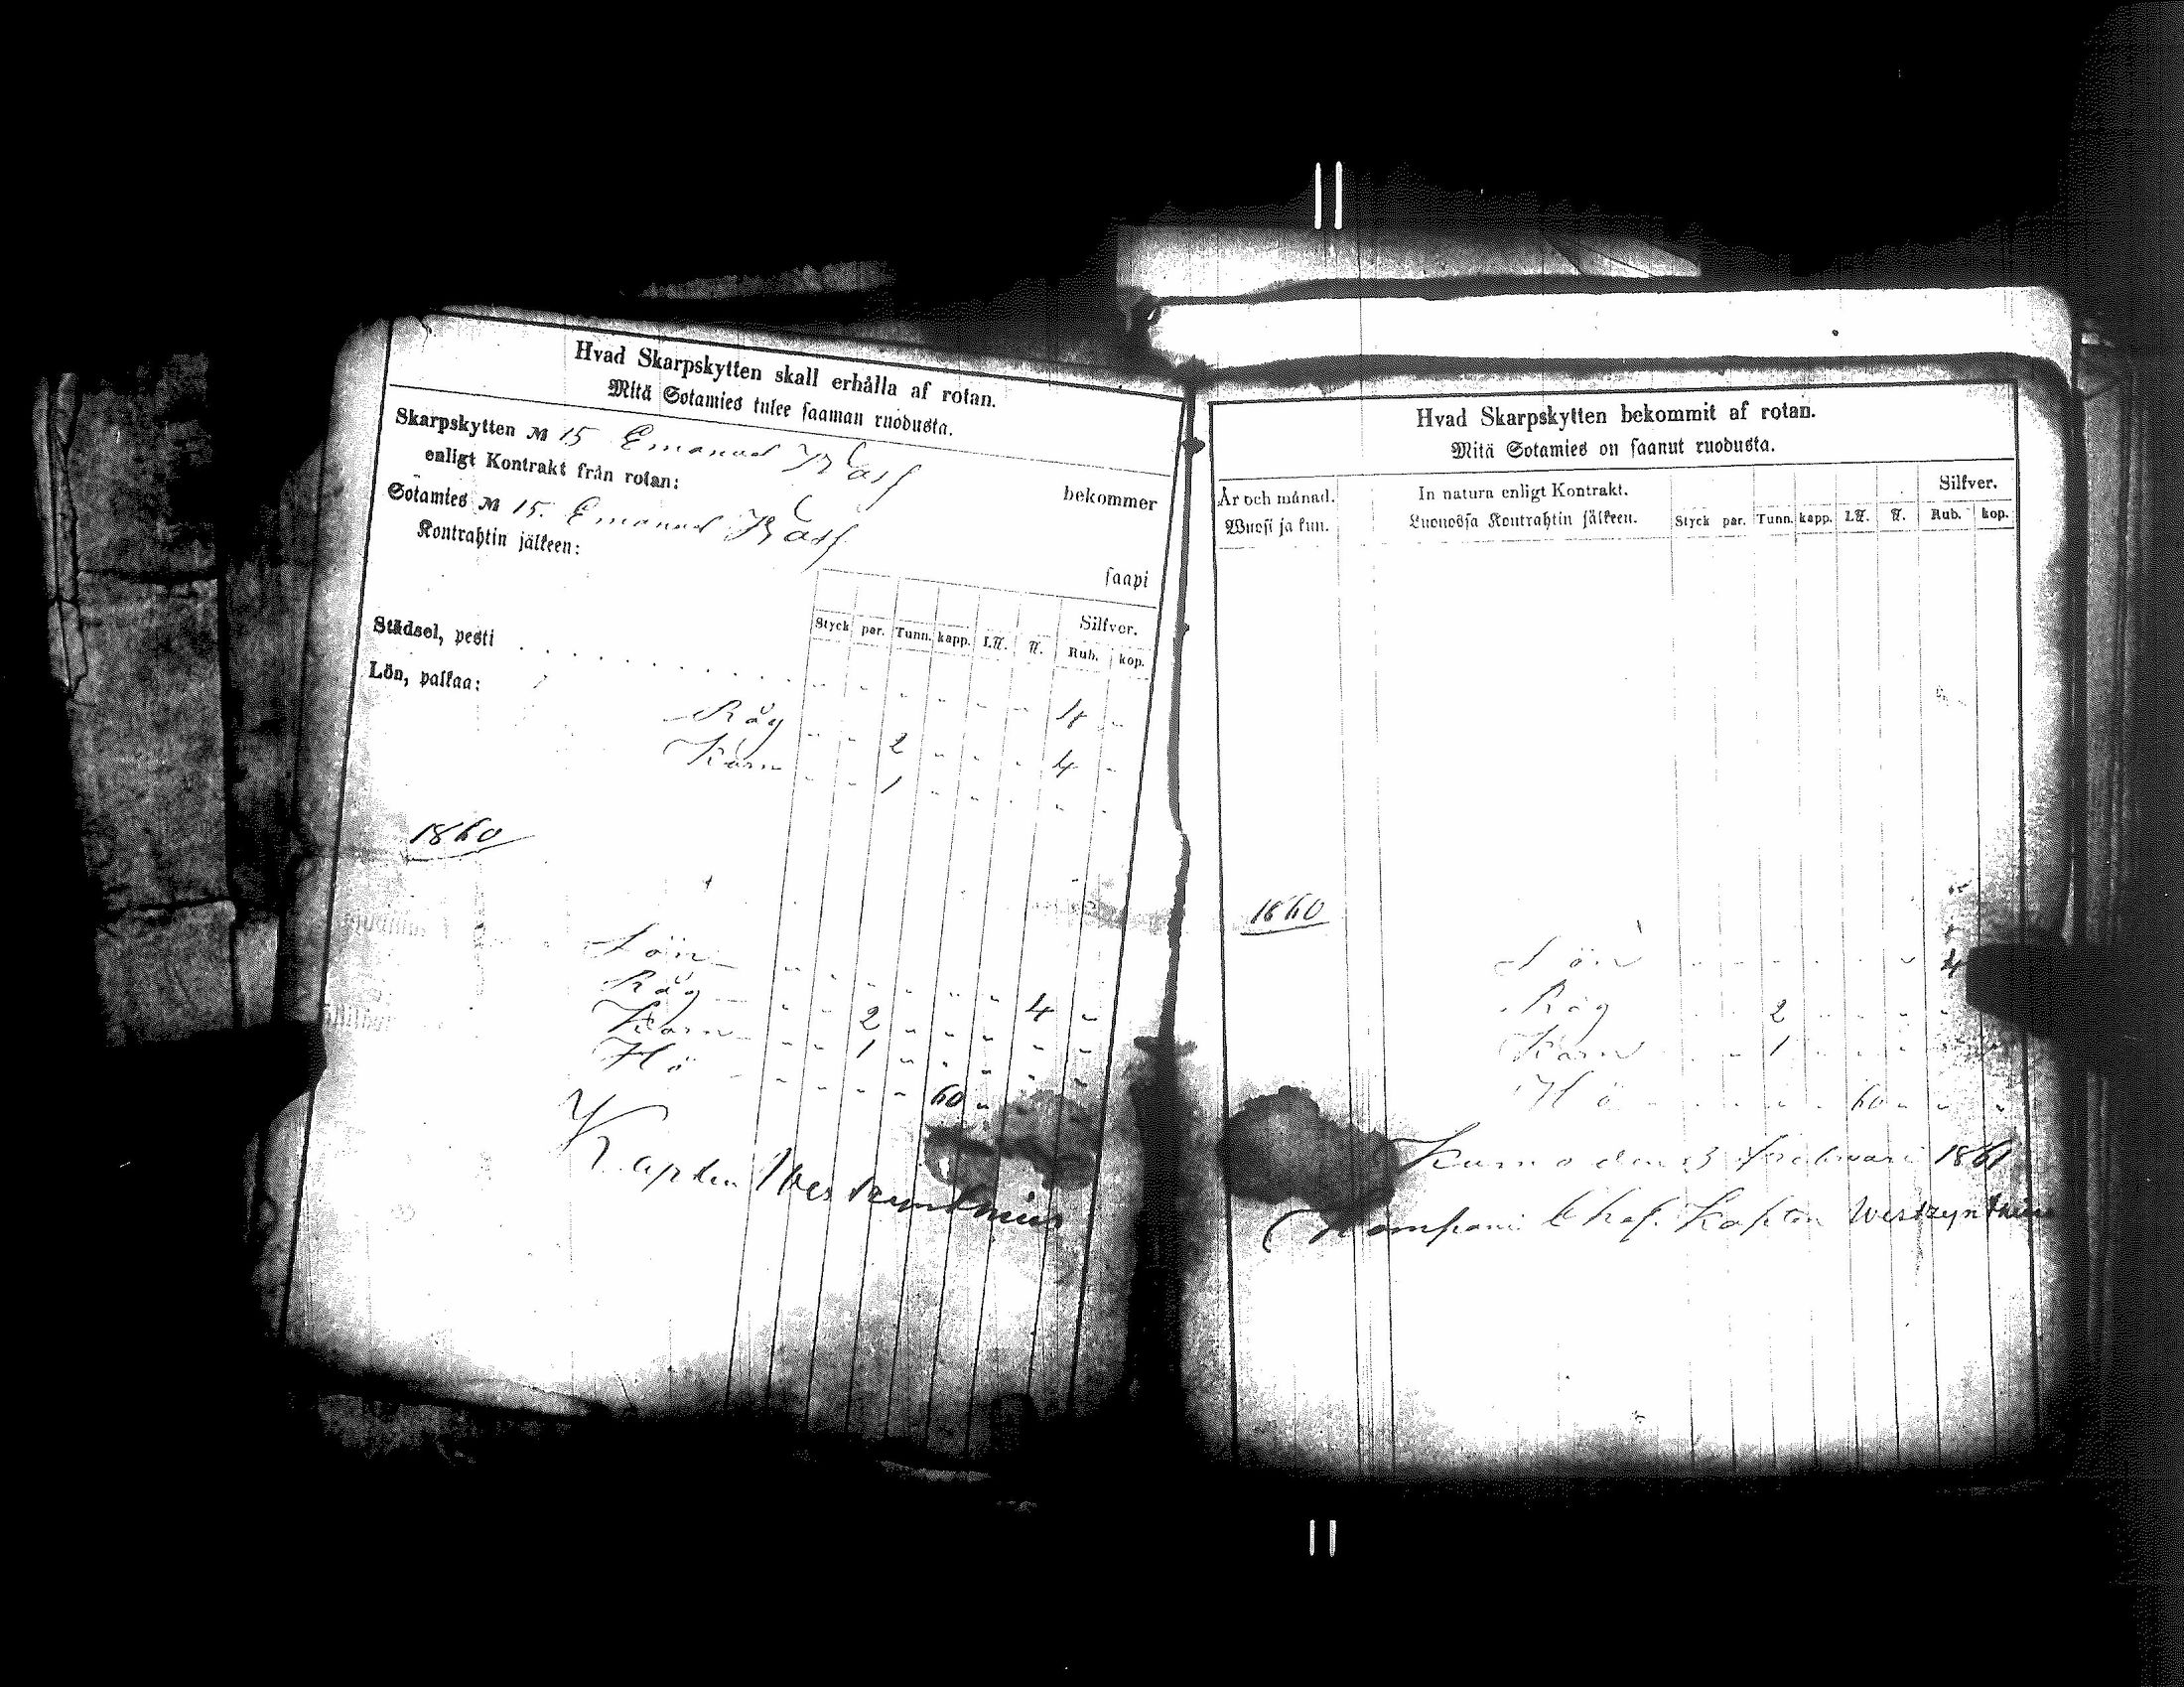 Hvad Skarpskytten skall erhålla af rotan.
Mitä Sotamies tulee saaman ruodusta.
Skarpskytten № 15 Emanuel Rask
enligt Kontrakt från rotan: bekommer
Sotamies № 15. Emanuel Rask
Kontrahtin jälkeen: saapi
Silfver.
Styck par. Tunn. kapp. L℔. ℔. Rub. kop.
Städsel, pesti . . . . . . . . . . . - - - - - - 18 -
Lön, palkaa: - - - - - - 4 -
Råg - - 2 - - - - -
Korn - - 1 - - - - -
1860
Lön - - - - - - 4 -
Råg - - 2 - - - - -
Korn - - 1 - - - - -
Hö - - - - 60 -
Kapten Westzynthius
Hvad Skarpskytten bekommit af rotan.
Mitä Sotamies on saanut ruodusta.
År och månad. In natura enligt Kontrakt. Silfver.
Wuosi ja kuu. Luonossa Kontrahtin jälkeen. Styck par. Tunn. kapp. L℔. ℔. Rub. kop.
1860
Lön - - - - - - 4
Råg - - 2 - - - -
Korn - - 1 - - - -
Hö - - - - 60 - - -
Kumo den 23 februari 1861
Kompani Chef. Kapten Westzynthius